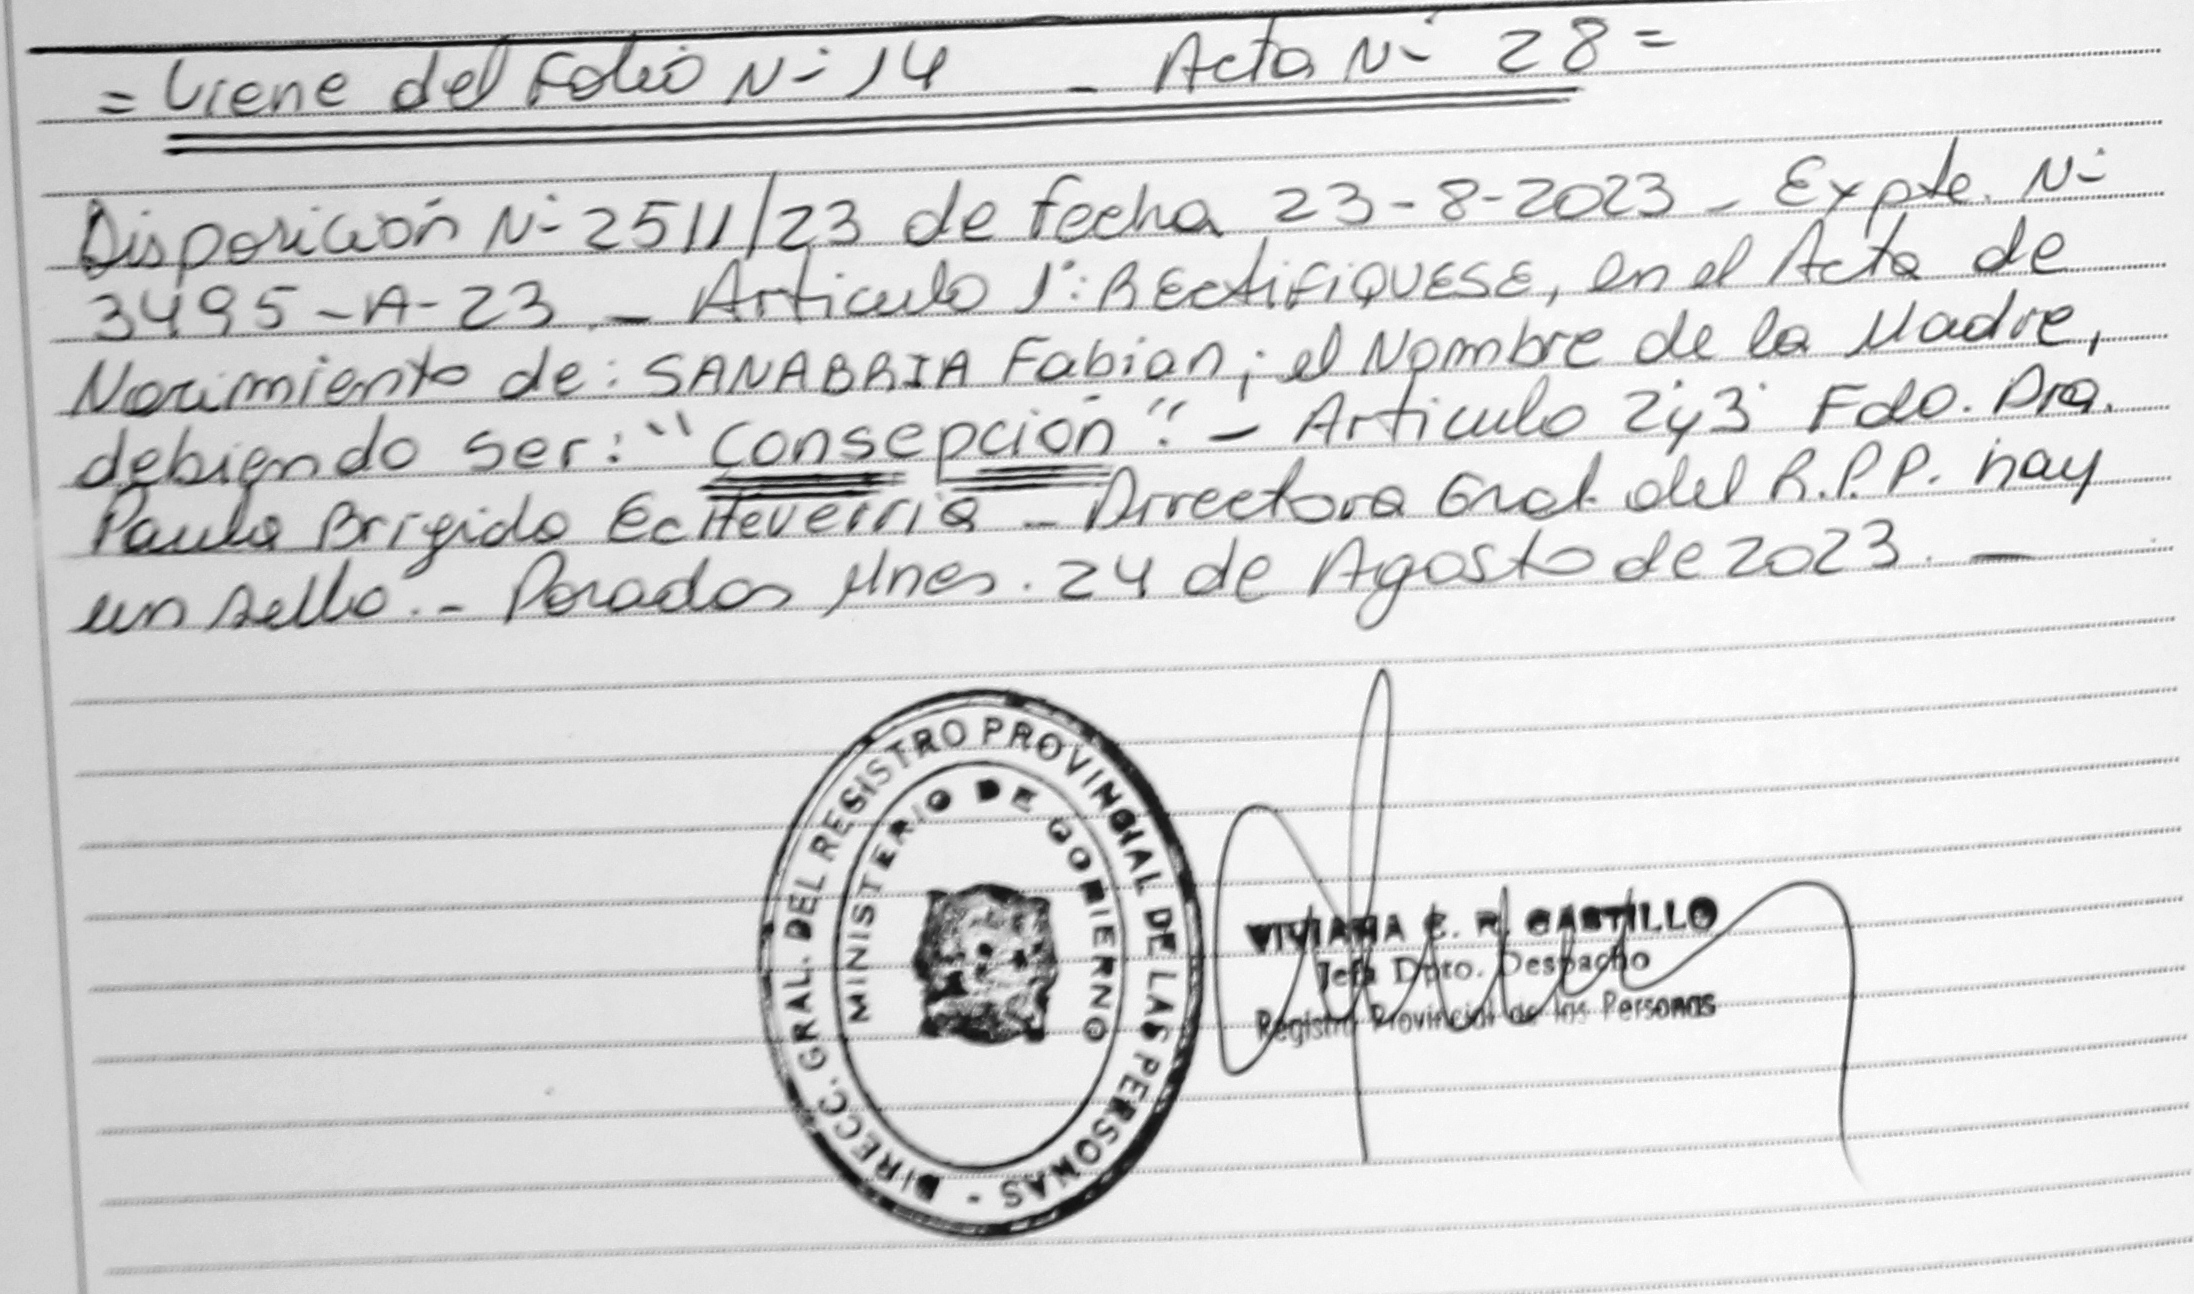 = Viene del Folio N- 14 - Acta N- 28 =
Disposición N- 2511/23 de fecha 23-8-2023 - Expte. N-
3495-A-23.- Articulo 1°: RECTIFIQUESE, en el Acta de
Nacimiento de: SANABRIA Fabian; el Nombre de la Madre,
debiendo ser: "Consepción".- Articulo 2 y 3 Fdo. Dra.
Paula Brigido Echeverria - Directora Gral. del R.P.P. hay
un sello.- Posadas Mnes. 24 de Agosto de 2023. -
DIRECC. GRAL. DEL REGISTRO PROVINCIAL DE LAS PERSONAS -
MINISTERIO DE GOBIERNO
VIVIANA C. R. CASTILLO
Jefa Dpto. Despacho
Registro Provincial de las Personas